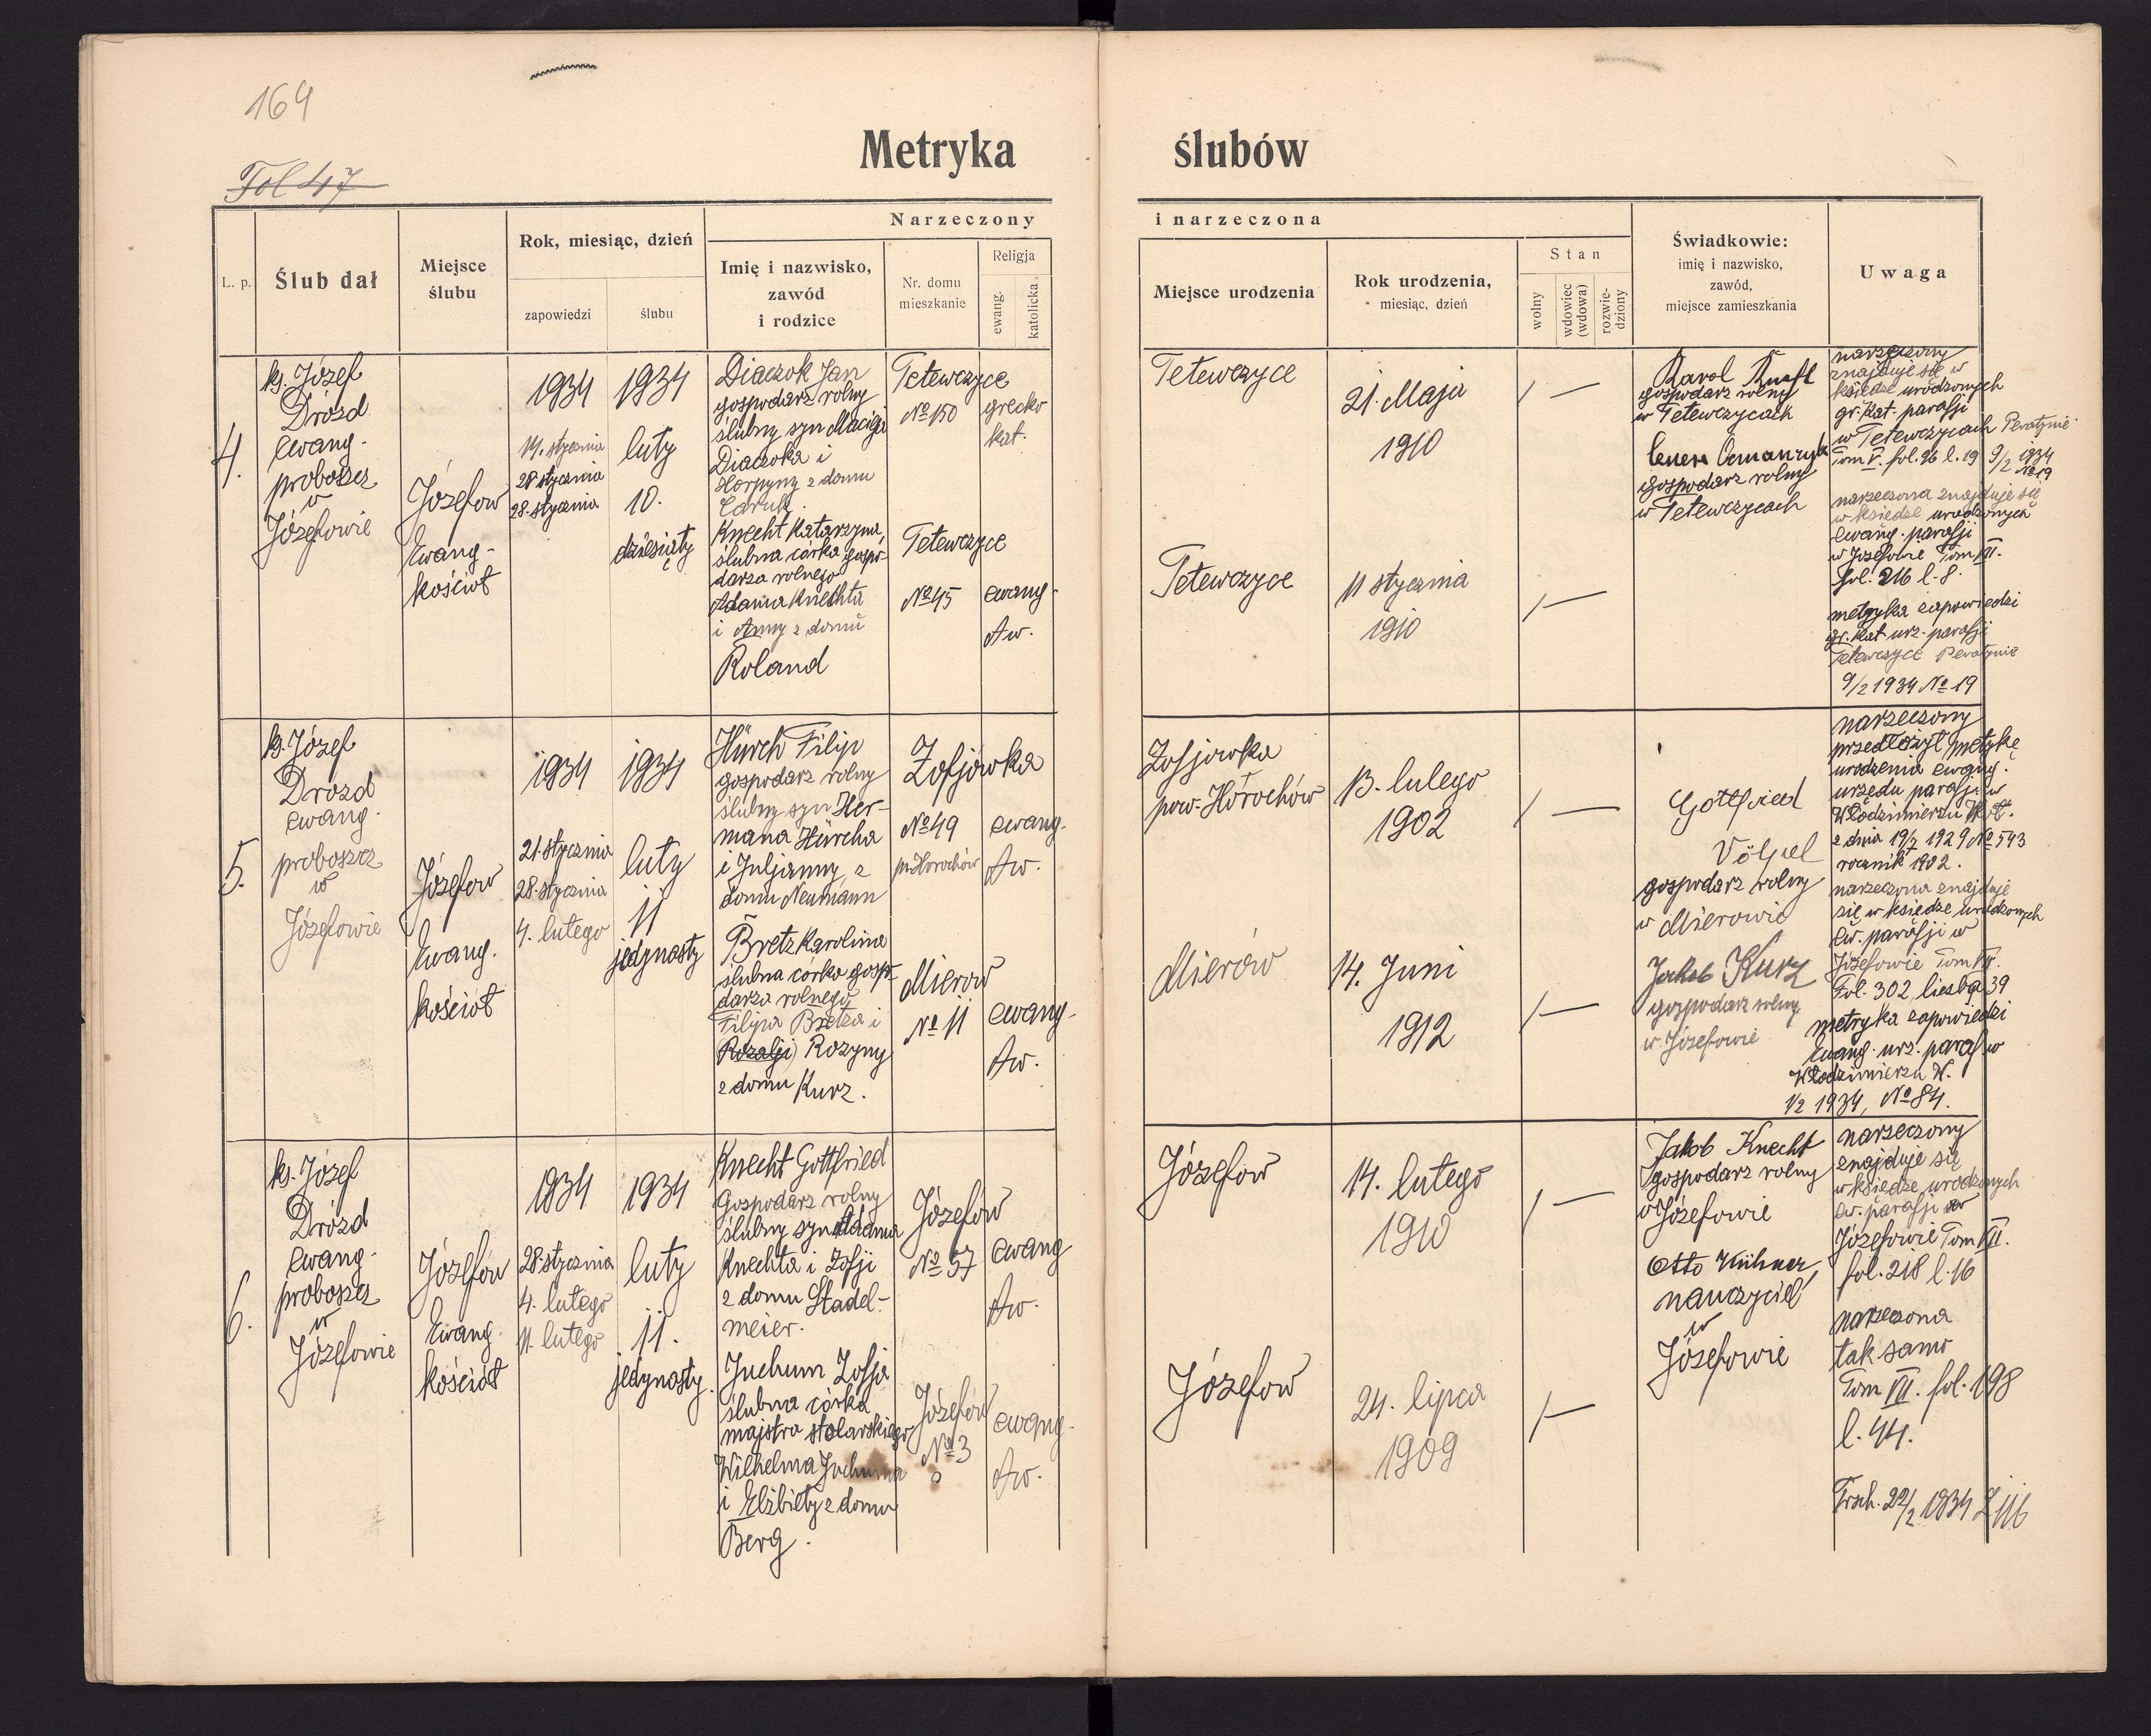 164
Fol 47
Metryka ślubów
L. p.
Ślub dał
Miejsce
ślubu
Rok, miesiąc, dzień
zapowiedzi
ślubu
Narzeczony
Imię i nazwisko,
zawód
i rodzice
Nr. domu
mieszkanie
Religja
ewang.
katolicka
i narzeczona
Miejsce urodzenia
Rok urodzenia,
miesiąc, dzień
Stan
wolny
wdowiec
(wdowa)
rozwie-
dziony
Świadkowie:
imię i nazwisko,
zawód,
miejsce zamieszkania
Uwaga
4.
ks. Józef
Drozd
ewang.
proboszcz
w
Józefowie
Józefow
Ewang-
kościoł
1934
14. stycznia
28 stycznia
28. stycznia
1934
luty
10.
dziesiąty
Diaczok Jan
gospodarz rolny
ślubny syn Macieja
Diaczoka i
Horpyny z domu
Knecht Katarzyna,
ślubna córka gospo-
darza rolnego
Adama Knechta
i Anny z domu
Roland
Tetewczyce
№ 150
grecko
kat.
Tetewczyce
№ 45
ewang.
Aw.
Tetewczyce
21. Maja
1910
/ —
Tetewczyce
11 stycznia
1910
/ —
Karol
gospodarz rolny
w Tetewczycach
gospodarz rolny
w Tetewczycach
narzeczony
znajduje się w
księdze urodzonych
gr. kat. parafji
w Tetewczycach
Tom V. fol. 96 l. 19 9/2 1934
№ 19
narzeczona znajduje się
w księdze urodzonych
ewang. parafji
w Józefowie Tom VII.
fol. 216 l. 8.
metryka zapowiedzi
gr. kat. urz. parafji
Tetewczyce
9/2 1934 № 19
5.
ks. Józef
Drozd
ewang.
proboszcz
w
Józefowie
Józefow
Ewang.
kościoł
1934
21. stycznia
28. stycznia
4. lutego
1934
luty
11
jedynasty
Hürch Filip
gospodarz rolny
ślubny syn Her-
mana Hürcha
i Juljanny z
domu Neumann
Bretz Karolina
ślubna córka gospo-
darza rolnego
Filipa Bretza i
Rozalji) Rozyny
z domu Kurz.
Zofjówka
№ 49
p. Horochów
ewang.
Aw.
Mierow
№ 11
ewang.
Aw.
Zofjowka
pow. Horochów
13. lutego
1902
/ —
Mierów
14. Juni
1912
/ —
Gottfried
Völpel
gospodarz rolny
w Mierowie
Jakob Kurz
gospodarz rolny
w Józefowie
narzeczony
przedłożył metrykę
urodzenia ewang.
urzędu parafji w
Włodzimierzu Woł.
z dnia 19/7 1929 № 543
rocznik 1902.
narzeczona znajduje
się w księdze urodzonych
ew. parafji w
Józefowie Tom VII.
Fol. 302 liczba 39
metryka zapowiedzi
Ewang. urz. paraf w
Włodzimierzu W.
1/2 1934, № 84.
6.
ks. Józef
Drozd
ewang.
proboszcz
w
Józefowie
Józefów
Ewang.
kościoł
1934
28. stycznia
4. lutego
11. lutego
1934
luty
11.
jedynasty.
Knecht Gottfried
Gospodarz rolny
ślubny syn Adama
Knechta i Zofji
z domu Stadel-
meier.
Juchum Zofja
ślubna córka
majstra stolarskiego
Wilhelma Juchuma
i Elżbiety z domu
Berg.
Józefów
№ 57
ewang
Aw.
Józefów
№ 3
ewang.
Aw.
Józefow
14. lutego
1910
/ —
Józefow
24. lipca
1909
/ —
Jakob Knecht
gospodarz rolny
w Józefowie
Otto Kühner,
nauczyciel
w
Józefowie
narzeczony
znajduje się
w księdze urodzonych
ew. parafji w
Józefowie Tom VII.
fol. 218 l. 16
narzeczona
tak samo
Tom VII. fol. 198
l. 44.
22/2 1934